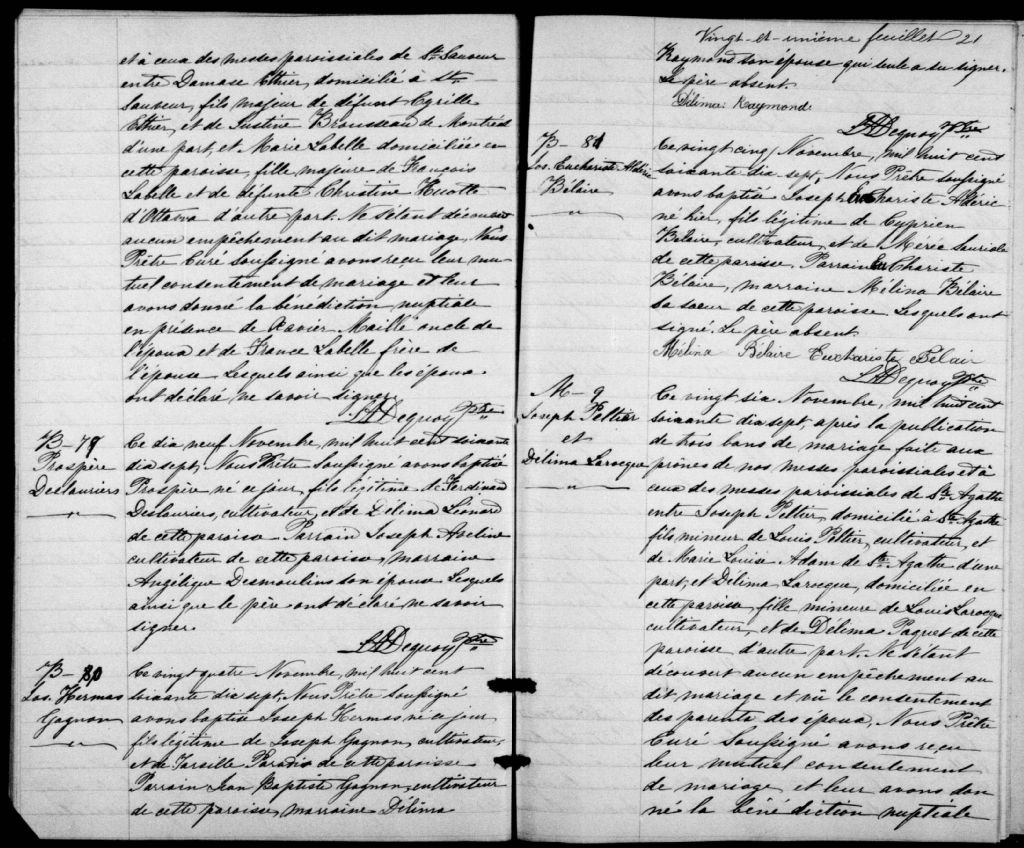 et à ceux des messes paroissiales de St Sauveur
entre Damase Ethier, domicilié à St-
Sauveur, fils majeur de défunt Cyrille
Ethier, et de Justine Brousseau de Montréal
d'une part, et Marie Labelle domiciliée en
cette paroisse, fille majeure de François
Labelle et de défunte Christine Huotte
d'Ottawa d'autre part. Ne s'étant découvert
aucun empêchement au dit mariage, Nous
Prêtre Curé soussigné avons reçu leur mu-
tuel consentement de mariage et leur
avons donné la bénédiction nuptiale
en présence de Xavier Maillé oncle de
l'époux et de France Labelle frère de
l'épouse Lesquels ainsi que les époux
ont déclaré ne savoir signer
Dequoy Ptre
B- 79
Prospère
Deslauriers
Ce dix neuf Novembre, mil huit cent soixante
dix sept, Nous Prêtre soussigné avons baptisé
Prospère né ce jour, fils légitime de Ferdinand
Deslauriers, cultivateur, et de Zélima Léonard
de cette paroisse Parrain Joseph Aveline
cultivateur de cette paroisse, marraine
Angélique Desmoulins son épouse Lesquels
ainsi que le père ont déclaré ne savoir
signer.
Dequoy Ptre
B- 80
Jos. Hermas
Gagnon
Ce vingt quatre Novembre, mil huit cent
soixante dix sept, Nous Prêtre soussigné
avons baptisé Joseph Hermas né ce jour
fils légitime de Joseph Gagnon, cultivateur,
et de Tarsille Paradis de cette paroisse
Parrain Jean Baptiste Gagnon, cultivateur
de cette paroisse, marraine Délima
Vingt-et-unième feuillet 21
Raymond son épouse qui seule a su signer.
Le père absent
Délima Raymond
Dequoy Ptre
B- 81
Jos. Euchariste Aldéric
Bélaire
Ce vingt cinq Novembre, mil huit cent
soixante dix sept, Nous Prêtre soussigné
avons baptisé Joseph Euchariste Aldéric
né hier, fils légitime de Cyprien
Bélaire, cultivateur, et de
de cette paroisse. Parrain Euchariste
Bélaire, marraine Mélina Bélaire
sa soeur de cette paroisse Lesquels ont
signé. Le père absent
Mélina Bélaire Euchariste Bélair
Dequoy Ptre
M- 9
Joseph Peltier
et
Délima Larocque
Ce vingt six Novembre, mil huit cent
soixante dix sept, après la publication
de trois bans de mariage faite aux
prônes de nos messes paroissiales et à
ceux des messes paroissiales de Ste Agathe
entre Joseph Peltier, domicilié à Ste Agathe
fils mineur de Louis Peltier, cultivateur, et
de Marie Louise Adam de Ste Agathe d'une
part, et Délima Larocque, domiciliée en
cette paroisse, fille mineure de Louis Larocque
cultivateur, et de Délima Paquet de cette
paroisse d'autre part. Ne s'étant
découvert aucun empêchement au
dit mariage et vû le consentement
des parents des époux, Nous Prêtre
Curé Soussigné avons reçu
leur mutuel consentement
de mariage et leur avons don
né la bénédiction nuptiale